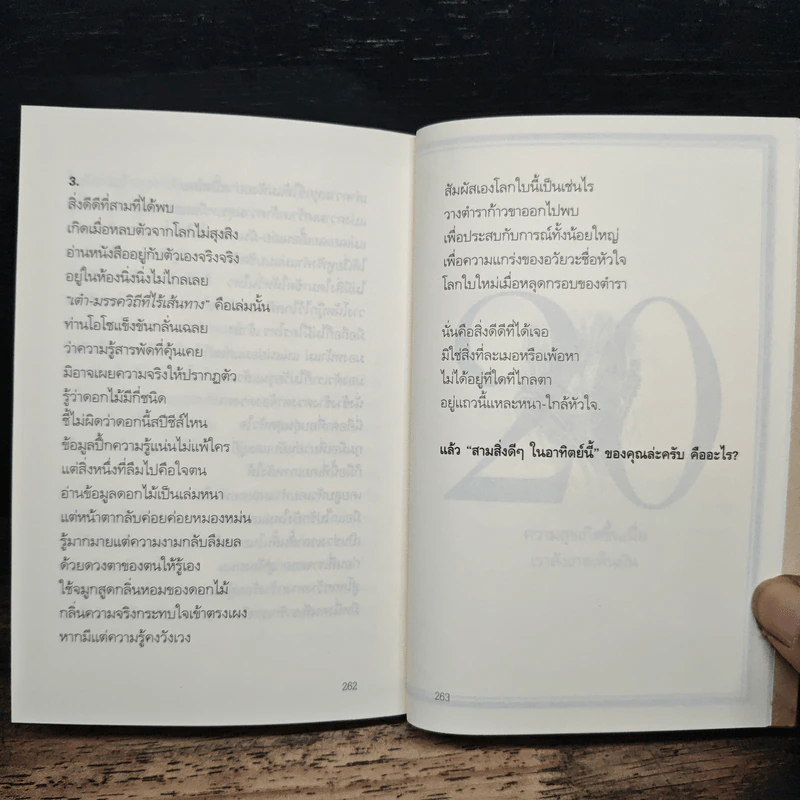 3.
สิ่งดีดีที่สามที่ได้พบ
เกิดเมื่อหลบตัวจากโลกไม่สุงสิง
อ่านหนังสืออยู่กับตัวเองจริงจริง
อยู่ในห้องนิ่งนิ่งไม่ไกลเลย
“เต๋า-มรรควิถีที่ไร้เส้นทาง” คือเล่มนั้น
ท่านโอโชแข็งขันกลั่นเฉลย
ว่าความรู้สารพัดที่คุ้นเคย
มิอาจเผยความจริงให้ปรากฏตัว
รู้ว่าดอกไม้มีกี่ชนิด
ชี้ไม่ผิดว่าดอกนี้สปีชีส์ไหน
ข้อมูลปึ้กความรู้แน่นไม่แพ้ใคร
แต่สิ่งหนึ่งที่ลืมไปคือใจตน
อ่านข้อมูลดอกไม้เป็นเล่มหนา
แต่หน้าตากลับค่อยค่อยหมองหม่น
รู้มากมายแต่ความงามกลับลืมยล
ด้วยดวงตาของตนให้รู้เอง
ใช้จมูกสูดกลิ่นหอมของดอกไม้
กลิ่นความจริงกระทบใจเข้าตรงเผง
หากมีแต่ความรู้คงวังเวง
262
สัมผัสเองโลกใบนี้เป็นเช่นไร
วางตำราก้าวขาออกไปพบ
เพื่อประสบกับการณ์ทั้งน้อยใหญ่
เพื่อความแกร่งของอวัยวะชื่อหัวใจ
โลกใบใหม่เมื่อหลุดกรอบของตำรา
นั่นคือสิ่งดีดีที่ได้เจอ
มิใช่สิ่งที่ละเมอหรือเพ้อหา
ไม่ได้อยู่ที่ใดที่ไกลตา
อยู่แถวนี้แหละหนา-ใกล้หัวใจ.
แล้ว “สามสิ่งดีๆ ในอาทิตย์นี้” ของคุณล่ะครับ คืออะไร?
263